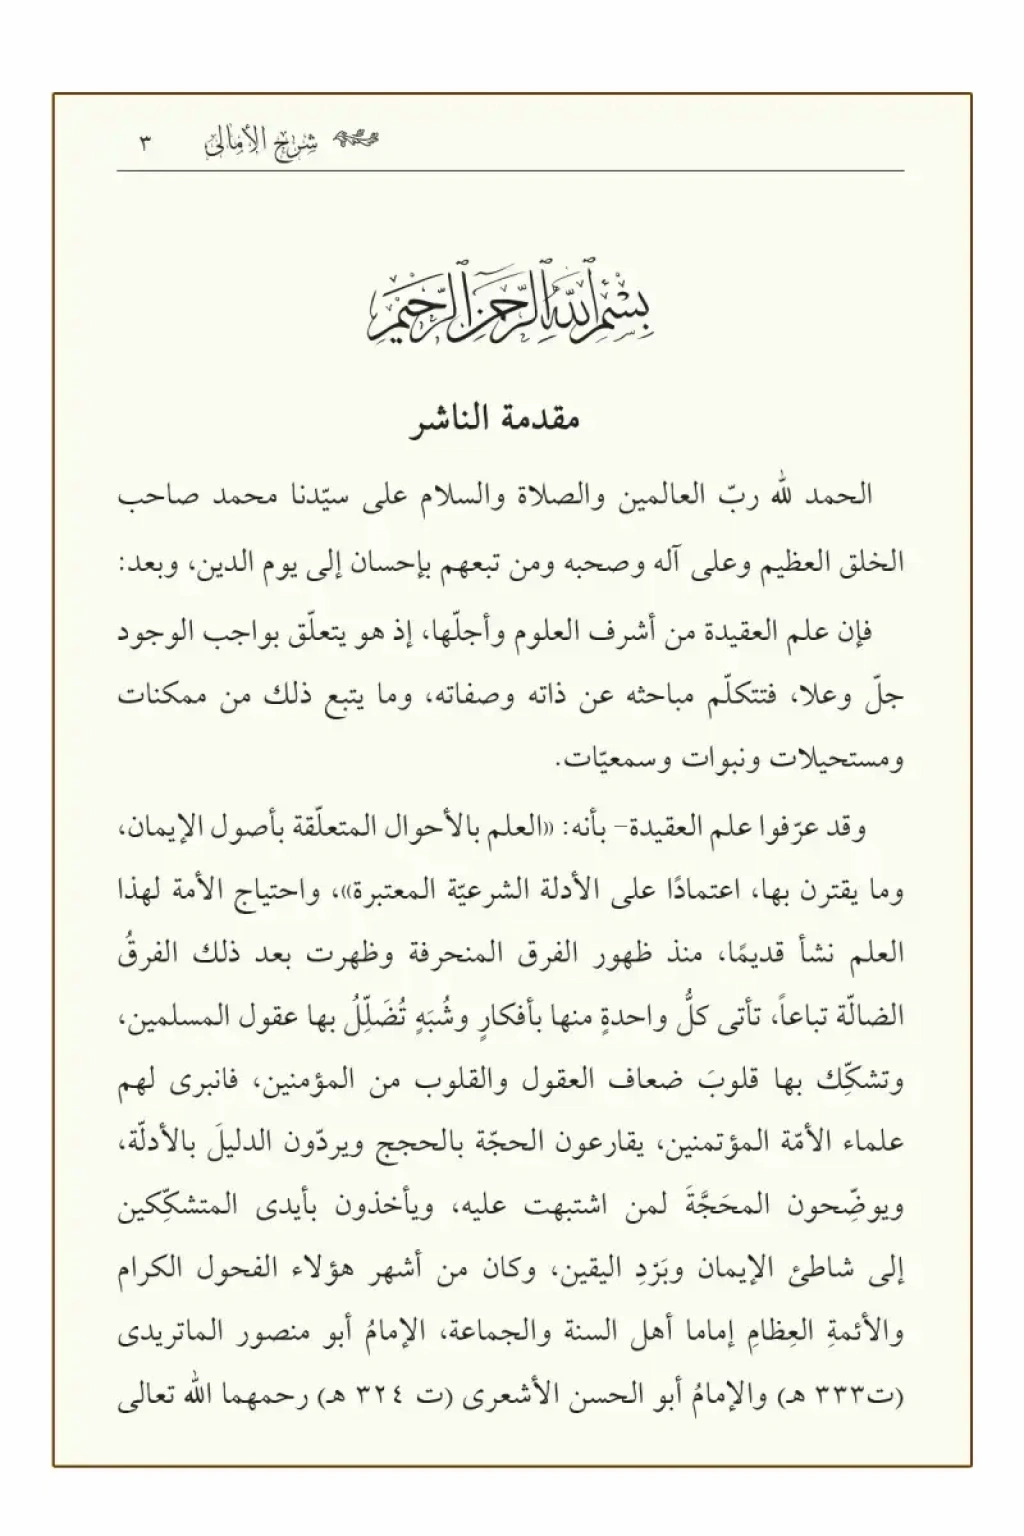 شرح الأمالي ٣
بِسْمِ ٱللَّهِ ٱلرَّحْمَٰنِ ٱلرَّحِيمِ
مقدمة الناشر
الحمد لله ربّ العالمين والصلاة والسلام على سيّدنا محمد صاحب
الخلق العظيم وعلى آله وصحبه ومن تبعهم بإحسان إلى يوم الدين، وبعد:
فإن علم العقيدة من أشرف العلوم وأجلّها، إذ هو يتعلّق بواجب الوجود
جلّ وعلا، فتتكلّم مباحثه عن ذاته وصفاته، وما يتبع ذلك من ممكنات
ومستحيلات ونبوات وسمعيّات.
وقد عرّفوا علم العقيدة- بأنه: «العلم بالأحوال المتعلّقة بأصول الإيمان،
وما يقترن بها، اعتمادًا على الأدلة الشرعيّة المعتبرة»، واحتياج الأمة لهذا
العلم نشأ قديمًا، منذ ظهور الفرق المنحرفة وظهرت بعد ذلك الفرقُ
الضالّة تباعاً، تأتى كلُّ واحدةٍ منها بأفكارٍ وشُبَهٍ تُضَلِّلُ بها عقول المسلمين،
وتشكِّك بها قلوبَ ضعاف العقول والقلوب من المؤمنين، فانبرى لهم
علماء الأمّة المؤتمنين، يقارعون الحجّة بالحجج ويردّون الدليلَ بالأدلّة،
ويوضِّحون المحَجَّةَ لمن اشتبهت عليه، ويأخذون بأيدى المتشكِّكين
إلى شاطئ الإيمان وبَرْدِ اليقين، وكان من أشهر هؤلاء الفحول الكرام
والأئمةِ العِظامِ إماما أهل السنة والجماعة، الإمامُ أبو منصور الماتريدى
(ت٣٣٣ هـ) والإمامُ أبو الحسن الأشعرى (ت ٣٢٤ هـ) رحمهما الله تعالى